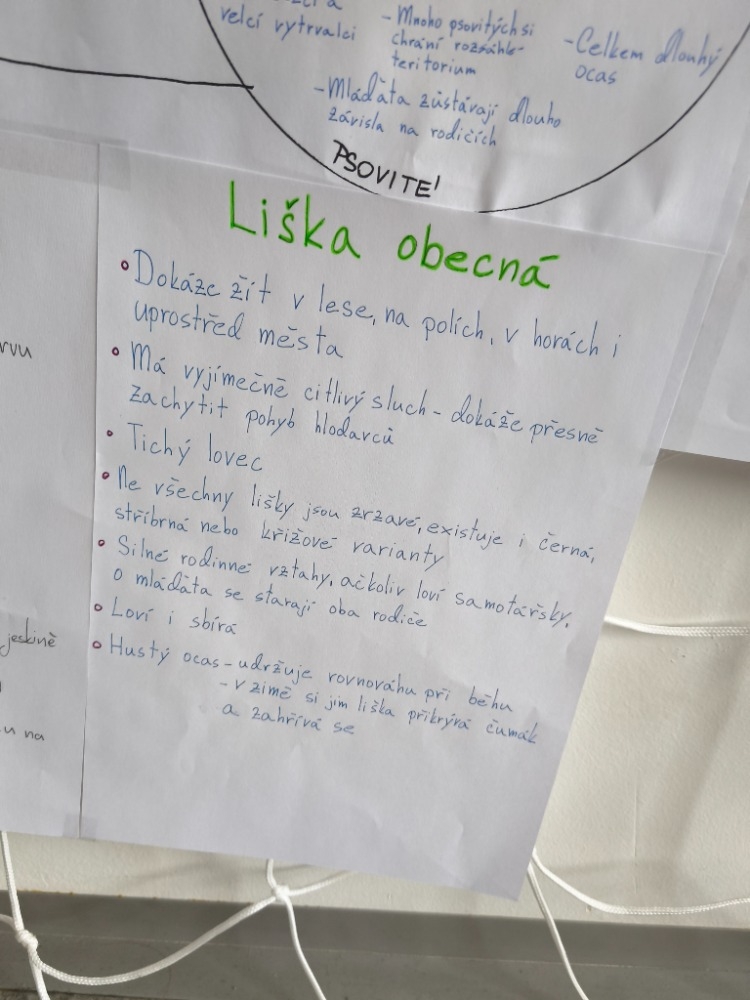 velcí vytrvalci
- Mnoho psovitých si
chrání rozsáhle-
teritorium
- Celkem dlouhý
ocas
- Mláďata zůstávají dlouho
závislá na rodičích
PSOVITÉ!
Liška obecná
• Dokáže žít v lese, na polích, v horách i
uprostřed města
• Má vyjímečně citlivý sluch - dokáže přesně
zachytit pohyb hlodavců
• Tichý lovec
• Ne všechny lišky jsou zrzavé, existuje i černá,
stříbrná nebo křížové varianty
• Silné rodinné vztahy, ačkoliv loví samotářsky,
o mláďata se starají oba rodiče
• Loví i sbírá
• Hustý ocas - udržuje rovnováhu při běhu
- v zimě si jím liška přikrývá čumák
a zahřívá se
jeskině
na